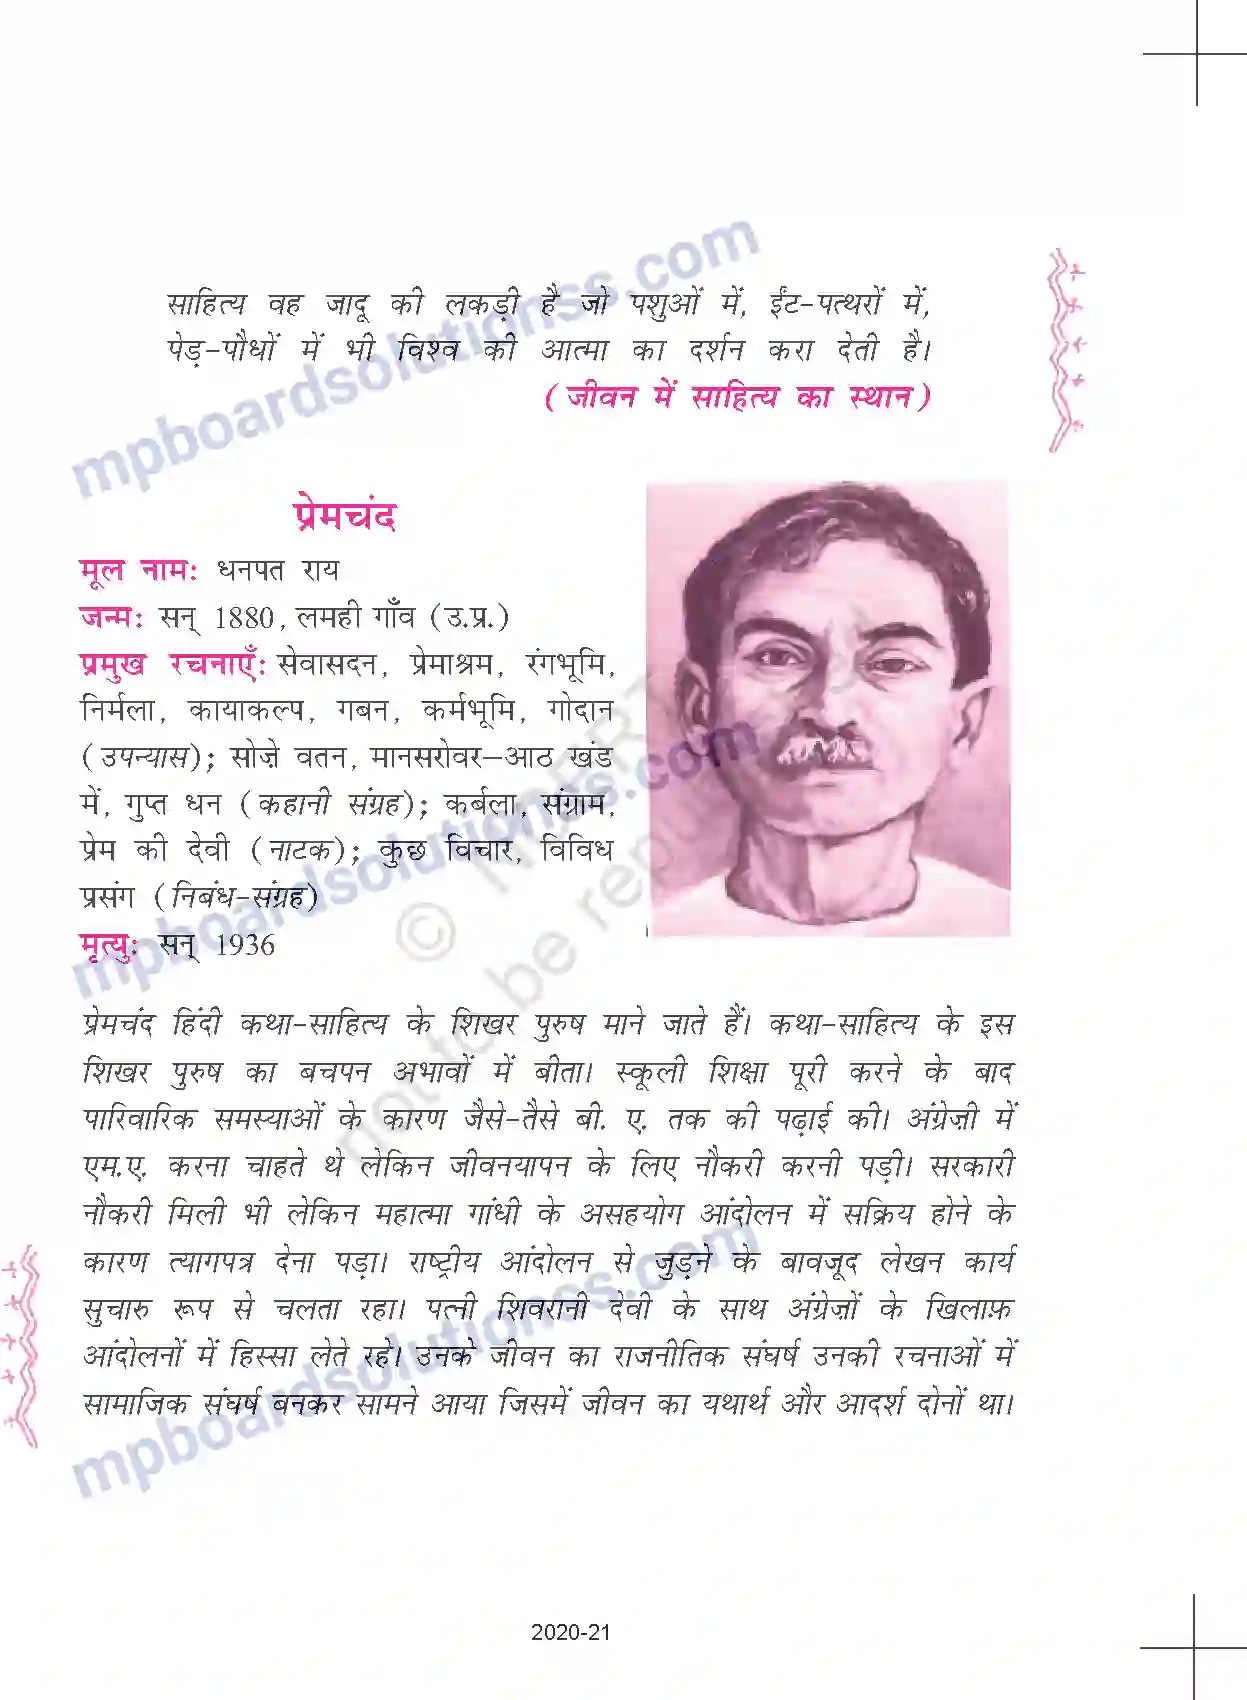 साहित्य वह जादू की लकड़ी है जो पशुओं में, ईंट-पत्थरों में,
पेड़-पौधों में भी विश्व की आत्मा का दर्शन करा देती है।
(जीवन में साहित्य का स्थान)
प्रेमचंद
मूल नामः धनपत राय
जन्मः सन् 1880, लमही गाँव (उ.प्र.)
प्रमुख रचनाएँः सेवासदन, प्रेमाश्रम, रंगभूमि,
निर्मला, कायाकल्प, गबन, कर्मभूमि, गोदान
(उपन्यास); सोज़े वतन, मानसरोवर–आठ खंड
में, गुप्त धन (कहानी संग्रह); कर्बला, संग्राम,
प्रेम की देवी (नाटक); कुछ विचार, विविध
प्रसंग (निबंध-संग्रह)
मृत्युः सन् 1936
प्रेमचंद हिंदी कथा-साहित्य के शिखर पुरुष माने जाते हैं। कथा-साहित्य के इस
शिखर पुरुष का बचपन अभावों में बीता। स्कूली शिक्षा पूरी करने के बाद
पारिवारिक समस्याओं के कारण जैसे-तैसे बी. ए. तक की पढ़ाई की। अंग्रेज़ी में
एम.ए. करना चाहते थे लेकिन जीवनयापन के लिए नौकरी करनी पड़ी। सरकारी
नौकरी मिली भी लेकिन महात्मा गांधी के असहयोग आंदोलन में सक्रिय होने के
कारण त्यागपत्र देना पड़ा। राष्ट्रीय आंदोलन से जुड़ने के बावजूद लेखन कार्य
सुचारु रूप से चलता रहा। पत्नी शिवरानी देवी के साथ अंग्रेज़ों के खिलाफ़
आंदोलनों में हिस्सा लेते रहे। उनके जीवन का राजनीतिक संघर्ष उनकी रचनाओं में
सामाजिक संघर्ष बनकर सामने आया जिसमें जीवन का यथार्थ और आदर्श दोनों था।
2020-21
mpboardsolutionss.com
mpboardsolutionss.com
mpboardsolutionss.com
not to be